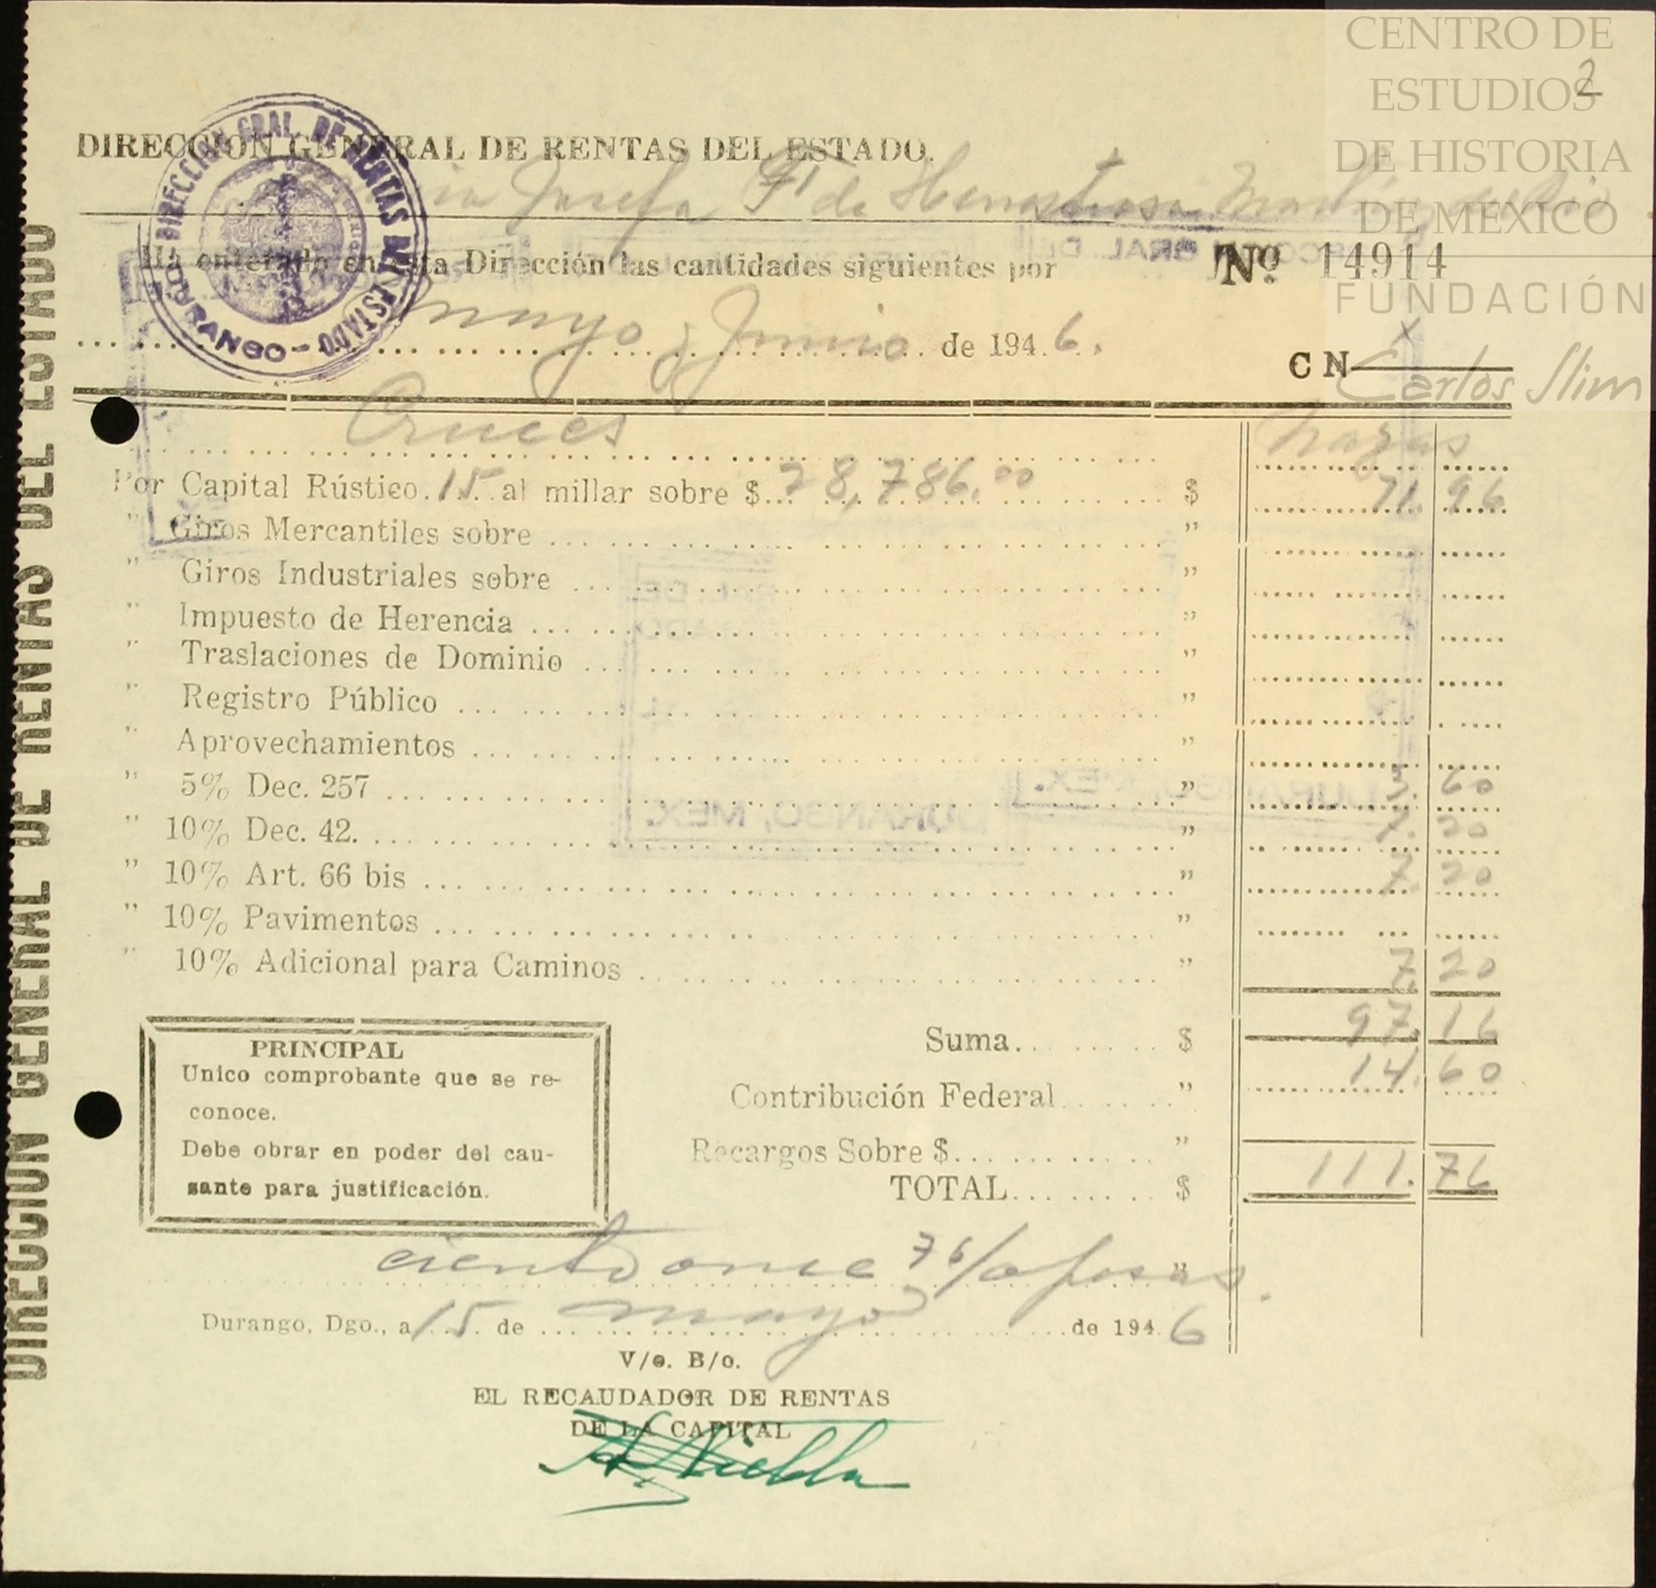 CENTRO DE
ESTUDIOS
DE HISTORIA
DE MÉXICO
FUNDACIÓN
Carlos Slim
2
DIRECCION GENERAL DE RENTAS DEL ESTADO.
DIRECCION GRAL. DE RENTAS DEL ESTADO
DURANGO
Josefa F. de Henostrosa
Ha enterado en esta Dirección las cantidades siguientes por
Nº 14914
mayo y Junio de 1946.
CN
Cruces
Nazas
Por Capital Rústico. 15 al millar sobre $ 28,786.00 $ 71.96
" Giros Mercantiles sobre "
" Giros Industriales sobre "
" Impuesto de Herencia "
" Traslaciones de Dominio "
" Registro Público "
" Aprovechamientos "
" 5% Dec. 257 " 3.60
" 10% Dec. 42. " 7.20
" 10% Art. 66 bis " 7.20
" 10% Pavimentos "
" 10% Adicional para Caminos " 7.20
Suma $ 97.16
Contribución Federal " 14.60
Recargos Sobre $ "
TOTAL $ 111.76
PRINCIPAL
Unico comprobante que se re-
conoce.
Debe obrar en poder del cau-
sante para justificación.
ciento once 76/0 pesos.
Durango, Dgo., a 15 de mayo de 1946
V/o. B/o.
EL RECAUDADOR DE RENTAS
DE LA CAPITAL
DIRECCION GENERAL DE RENTAS DEL ESTADO